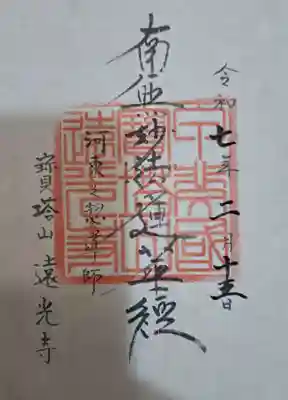 令和七年二月十五日
南無妙法蓮華經
河東之
寶塔山 遠光寺